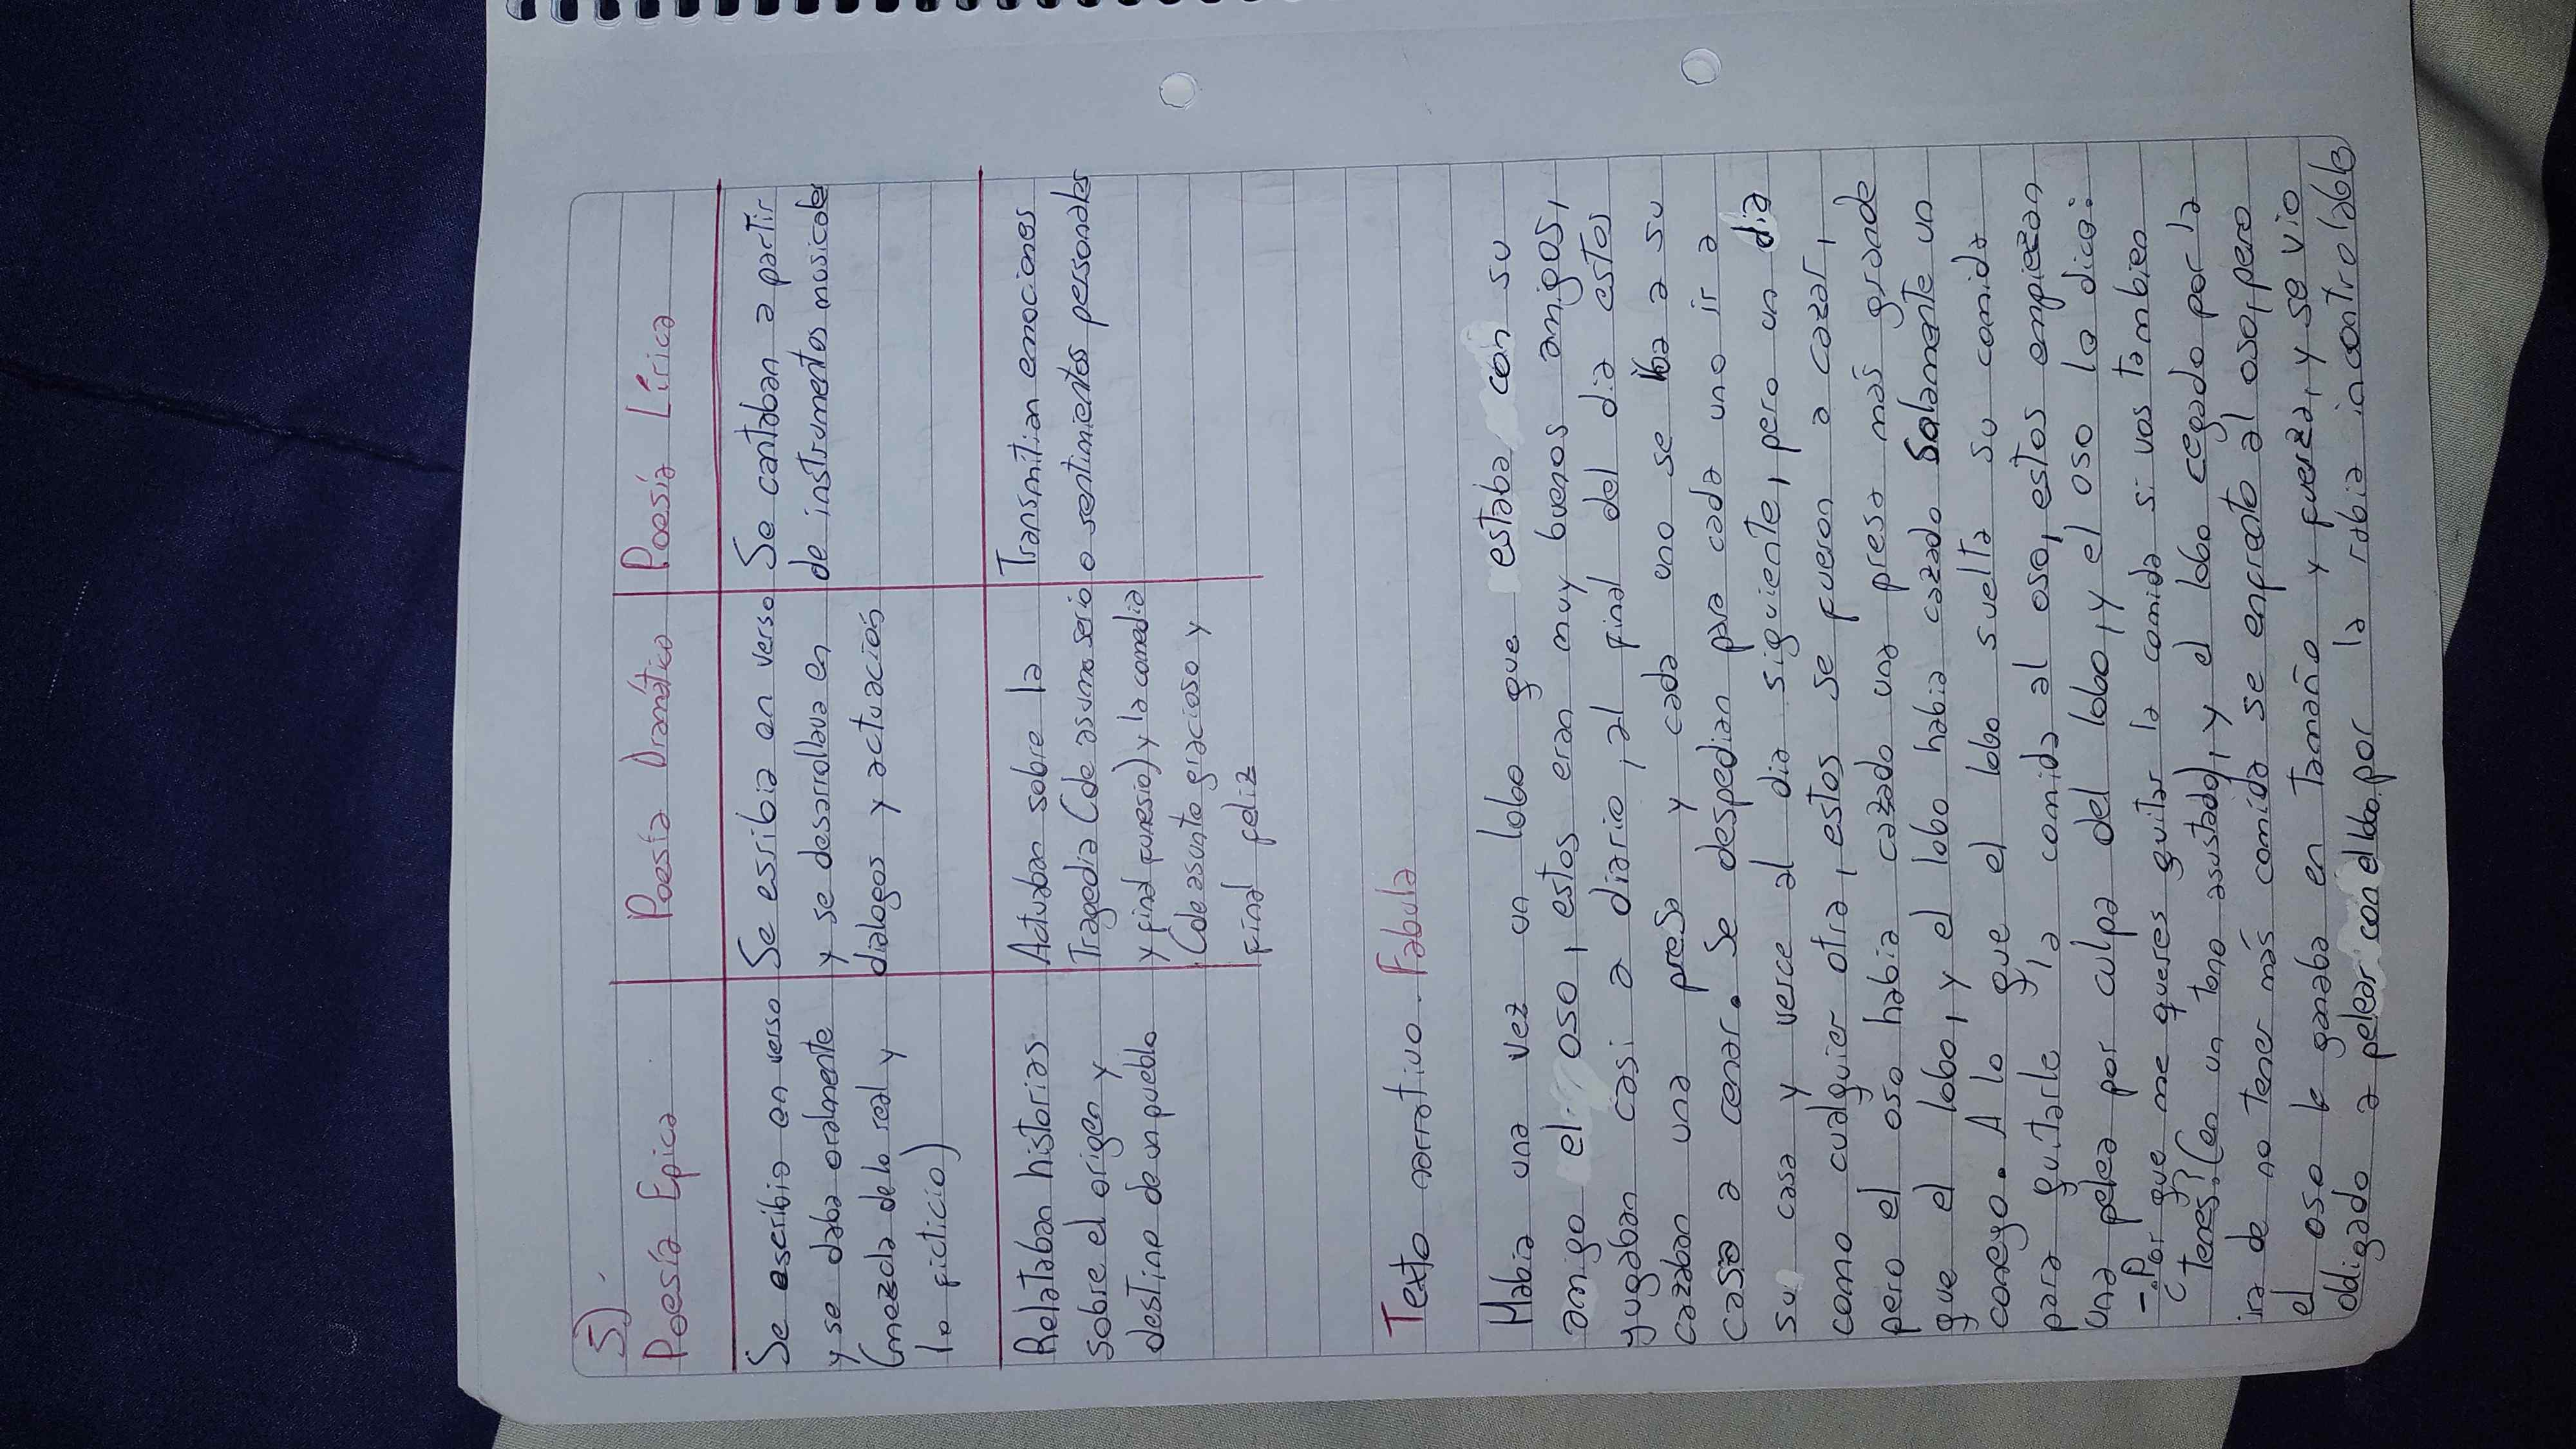 5).
Poesía Epica Poesía Dramática Poesía Lírica
Se escribia en verso Se esribia en verso Se cantaban a partir
y se daba oralmente y se desarrollava en de instrumentos musicales
(mezcla de lo real y dialogos y actuacios
lo ficticio)
Relataban historias Actuaban sobre la Transmitian emociones
sobre el origen y Tragedia (de asunto serio o sentimientos personales
destino de un pueblo y final funesio) y la comedia
(de asunto gracioso y
final feliz
Texto narrativo. Fabula
Habia una vez un lobo que estaba con su
amigo el oso, estos eran muy buenos amigos,
yugaban casi a diario, al final del dia estos
cazaban una presa y cada uno se iba a su
casa a cenar. Se despedian para cada uno ir a
su casa y verce al dia siguiente, pero un dia
como cualquier otra, estos se fueron a cazar,
pero el oso habia cazado una presa más grande
que el lobo, y el lobo habia cazado Solamente un
conego. A lo que el lobo suelta su comida
para quitarle la comida al oso, estos empiezan
una pelea por culpa del lobo, y el oso le dice:
-¿Por que me queres quitar la comida si vos tambien
tenes? (en un tono asustado), y el lobo cegado por la
ira de no tener más comida se enfrento al oso, pero
el oso le ganaba en tamaño y fuerza, y se vio
obligado a pelear con el lobo por la rabia incontrolable